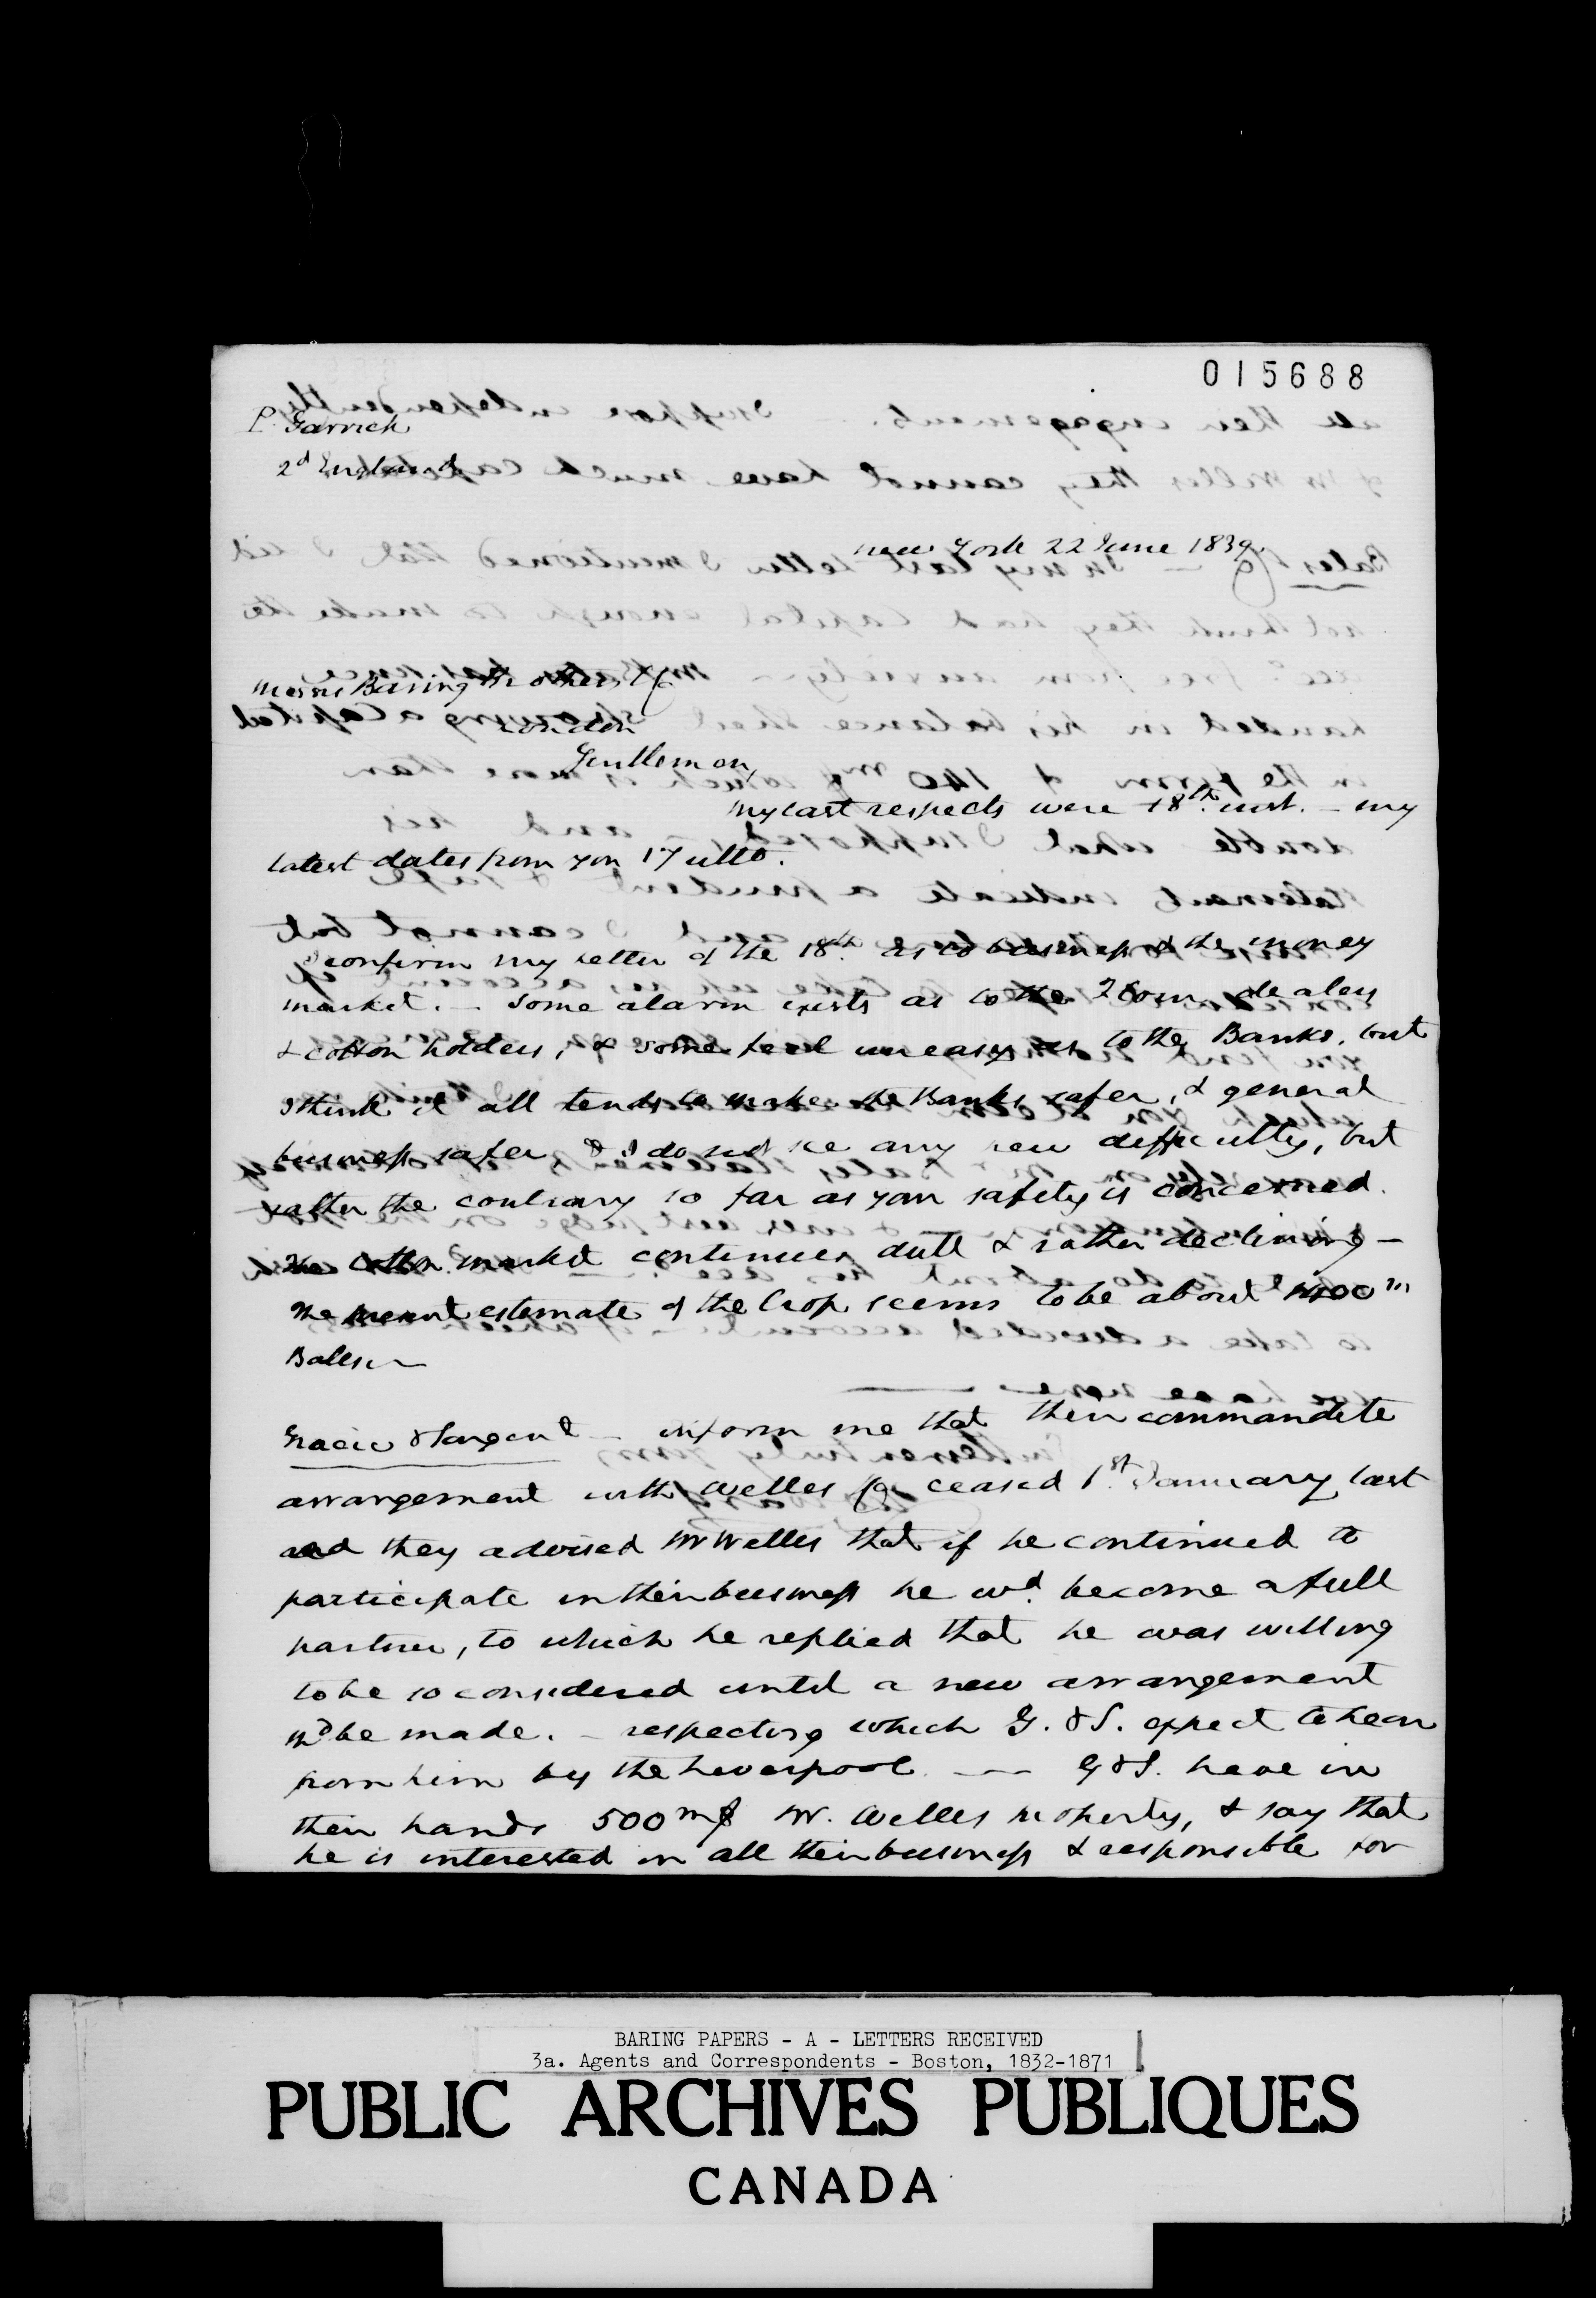 015688
P. Garrick
2d England
New York 22 June 1839
Messrs Baring Brothers & Co
London
Gentlemen,
My last respects were 18th inst. – my
latest dates from you 17 ulto.
I confirm my letter of the 18th as to business & the money
market. – Some alarm exists as to the dealers
& cotton holders, & some feel uneasy as to the Banks, but
I think it all tends to make the Banks safer, & general
business safer & I do not see any new difficulty, but
rather the contrary so far as your safety is concerned.
The Cotton market continues dull & rather declining –
The present estimate of the Crop seems to be about 1400m
Bales. –
Gracie & Sargent – inform me that their commandite
arrangement with Welles & Co ceased 1st January last
and they advised Mr Welles that if he continued to
participate in their business he wd. become a full
partner, to which he replied that he was willing
to be so considered until a new arrangement
wd be made. – respecting which G. & S. expect to hear
from him by the Liverpool. — G & S. have in
their hands 500m$ Mr. Welles property, & say that
he is interested in all their business & responsible for
BARING PAPERS - A - LETTERS RECEIVED
3a. Agents and Correspondents - Boston, 1832-1871
PUBLIC ARCHIVES PUBLIQUES
CANADA